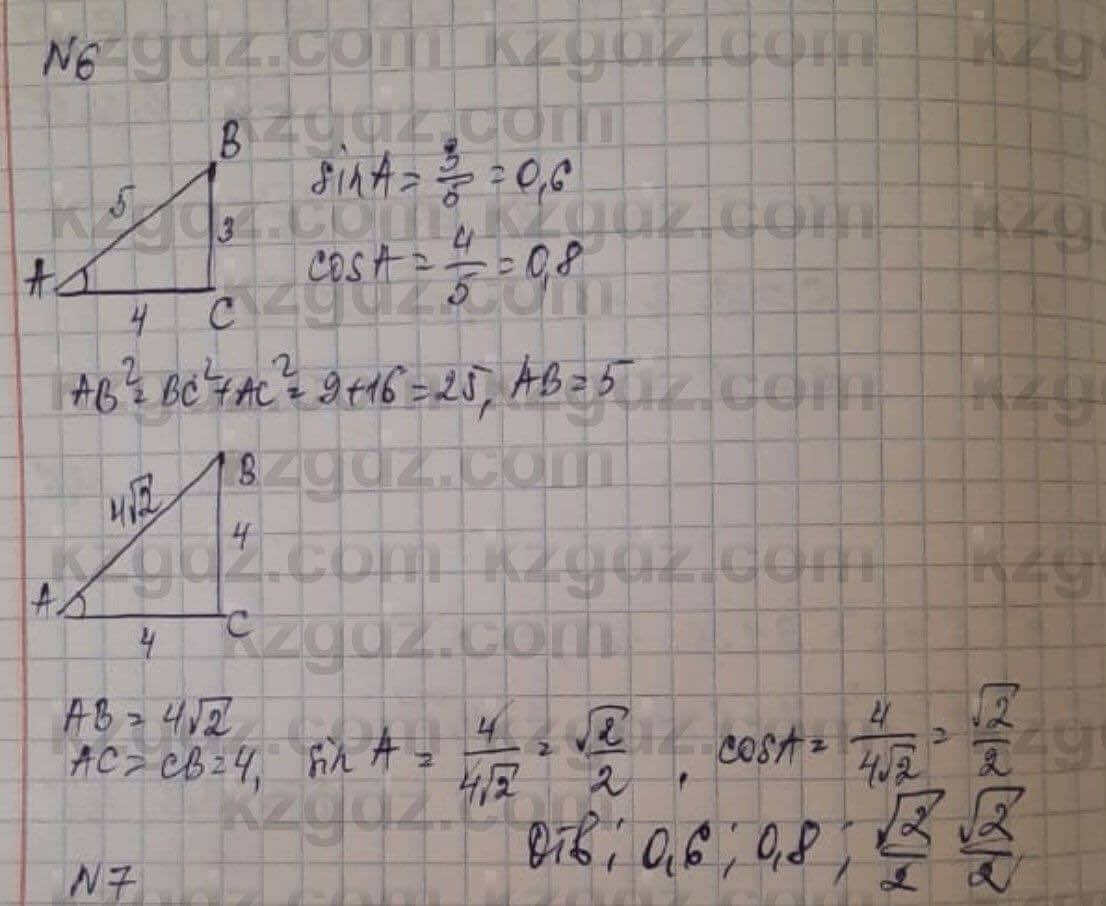 N6
B
5
sin A = 3/5 = 0,6
3
A
cos A = 4/5 = 0,8
4
C
AB² = BC² + AC² = 9 + 16 = 25, AB = 5
B
4√2
4
A
C
4
AB = 4√2
AC = CB = 4, sin A = 4/4√2 = √2/2, cos A = 4/4√2 = √2/2
Отв; 0,6; 0,8; √2/2 √2/2
N7
kzgdz.com